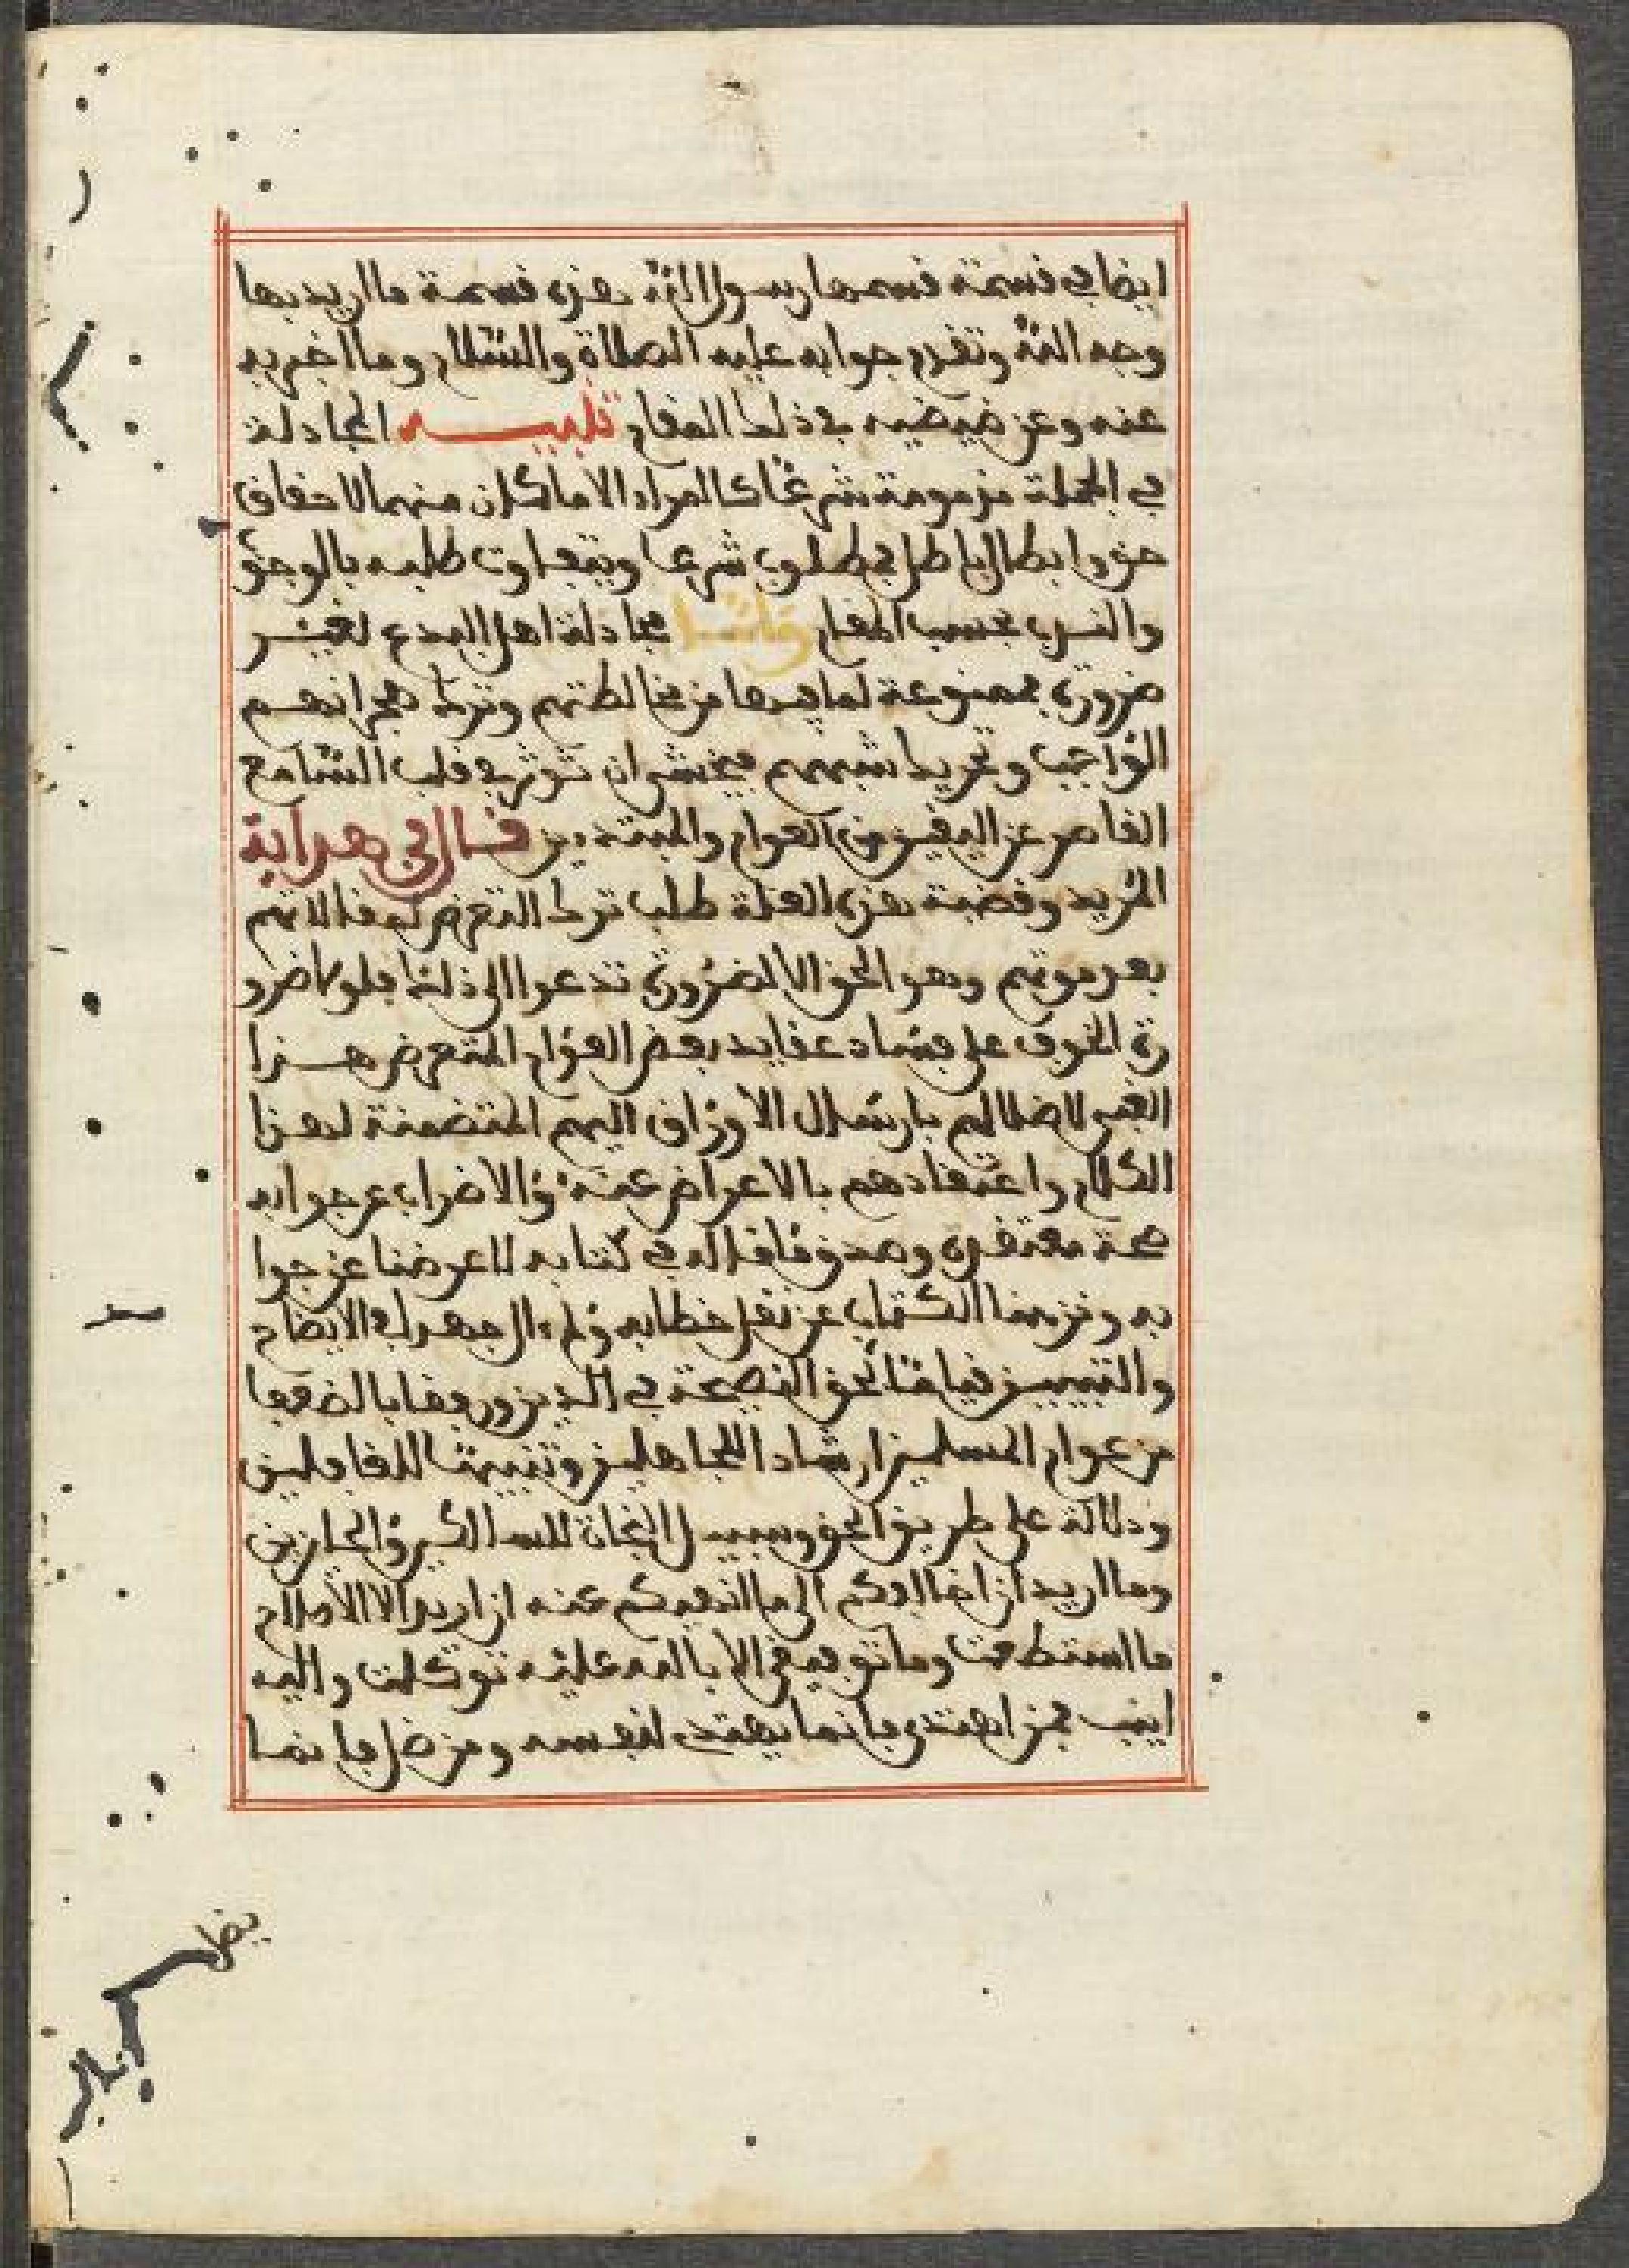 ايضا في قسمة قسمها رسول الله هذه قسمة ما اريد بها
وجه الله وتقدم جوابه عليه الصلاة والسلام وما اخبر به
عنه وعن ضيضيه في ذلك المقام تنبيه المجادلة
في الجملة مذمومة شرعا كالمراء الا ما كان منهما لاحقاق
حق وابطال باطل فمطلوب شرعا ويتفاوت طلبه بالوجوب
والندب بحسب المقام وامّا مجادلة اهل البدع لغير
ضرورة فممنوعة لما فيها من مخالطتهم وترك هجرانهم
الواجب وتحريك شبههم فيخشى ان تؤثر في قلب السامع
القاصر عن اليقين من العوام والمبتديين قال في هداية
المريد وقضية هذه العلة طلب ترك التعرض لمقالاتهم
بعد موتهم وهو الحق الا لضرورة تدعوا الى ذلك فلولا ضرو
رة الخوف على فساد عقايد بعض العوام المتعرض هذا
الغبي لاضلالهم بارسال الاوراق اليهم المتضمنة لهذا
الكلام واعتقادهم بالاعراض عنه والاضراب عن جوابه
صحة معتقده وصدق ما قاله في كتابه لاعرضنا عن جوا
به ونزهنا الكتاب عن نقل خطابه ولم ءال جهدا في الايضاح
والتبيين قياما بحق النصيحة في الدين ورفقا بالضعفا
من عوام المسلمين ارشادا للجاهلين وتنبيها للغافلين
ودلالة على طريق الحق وسبيل النجاة للسالكين والحايرين
وما اريد ان اخالفكم الى ما انهيكم عنه ان اريد الا الاصلاح
ما استطعت وما توفيقي الا بالله عليه توكلت واليه
انيب فمن اهتدى فانما يهتدي لنفسه ومن ضل فانما
يضل